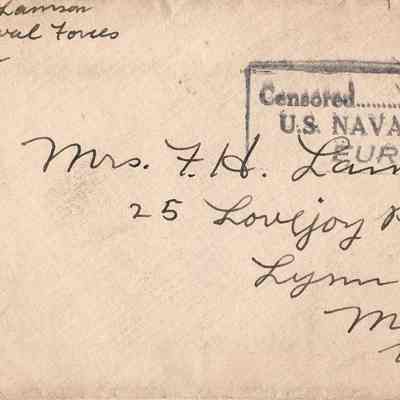 Lamson
val Forces
Censored..........
U.S. NAVA
EUR
Mrs. F. H. Lam
25 Lovejoy R
Lynn
M